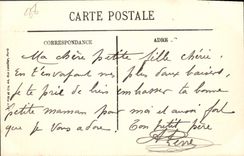 CARTE POSTALE
CORRESPONDANCE
ADRESSE
Ma chère petite fille chérie.
En t'envoyant mes plus doux baisers,
je te prie de bien embrasser ta bonne
petite maman pour moi et aussi fort
que je vous adore. Ton petit père
René